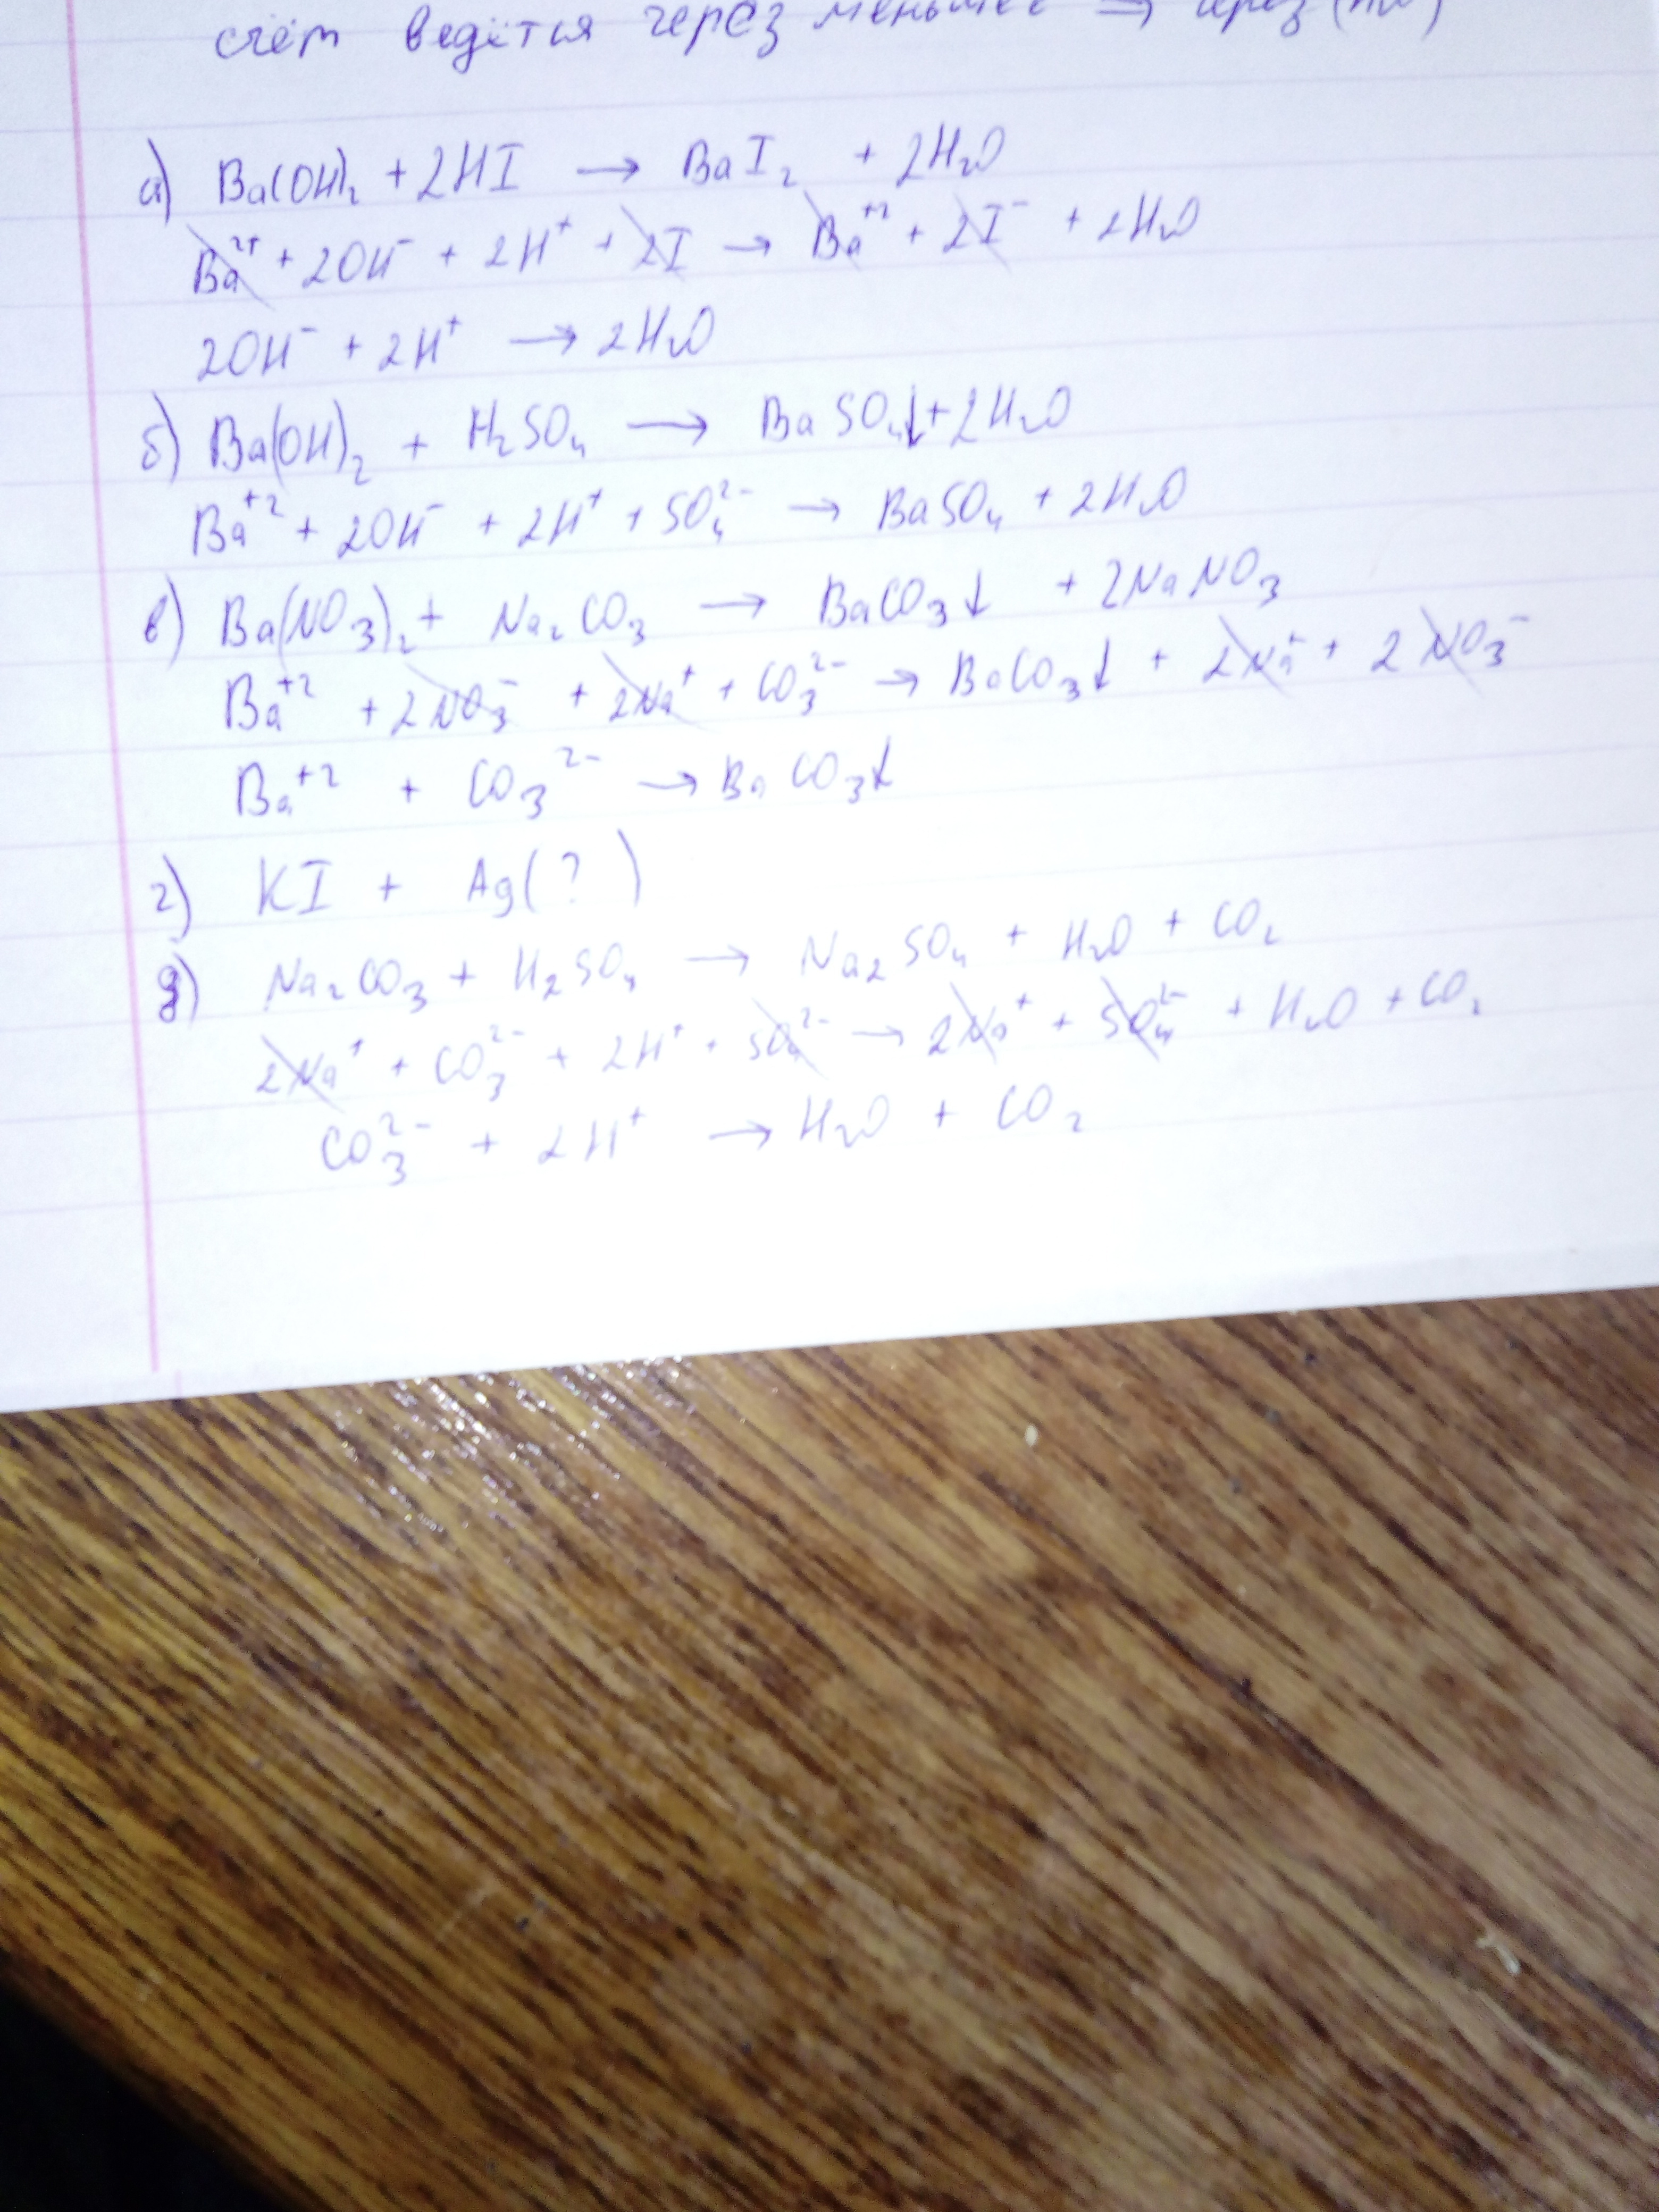 счёт ведётся через меньшее ⇒ через
а) Ba(OH)₂ + 2HI → BaI₂ + 2H₂O
Ba²⁺ + 2OH⁻ + 2H⁺ + 2I → Ba⁺² + 2I⁻ + 2H₂O
2OH⁻ + 2H⁺ → 2H₂O
б) Ba(OH)₂ + H₂SO₄ → BaSO₄↓ + 2H₂O
Ba⁺² + 2OH⁻ + 2H⁺ + SO₄²⁻ → BaSO₄ + 2H₂O
в) Ba(NO₃)₂ + Na₂CO₃ → BaCO₃↓ + 2NaNO₃
Ba⁺² + 2NO₃⁻ + 2Na⁺ + CO₃²⁻ → BaCO₃↓ + 2Na⁺ + 2NO₃⁻
Ba⁺² + CO₃²⁻ → BaCO₃↓
г) KI + Ag(? )
д) Na₂CO₃ + H₂SO₄ → Na₂SO₄ + H₂O + CO₂
2Na⁺ + CO₃²⁻ + 2H⁺ + SO₄²⁻ → 2Na⁺ + SO₄²⁻ + H₂O + CO₂
CO₃²⁻ + 2H⁺ → H₂O + CO₂